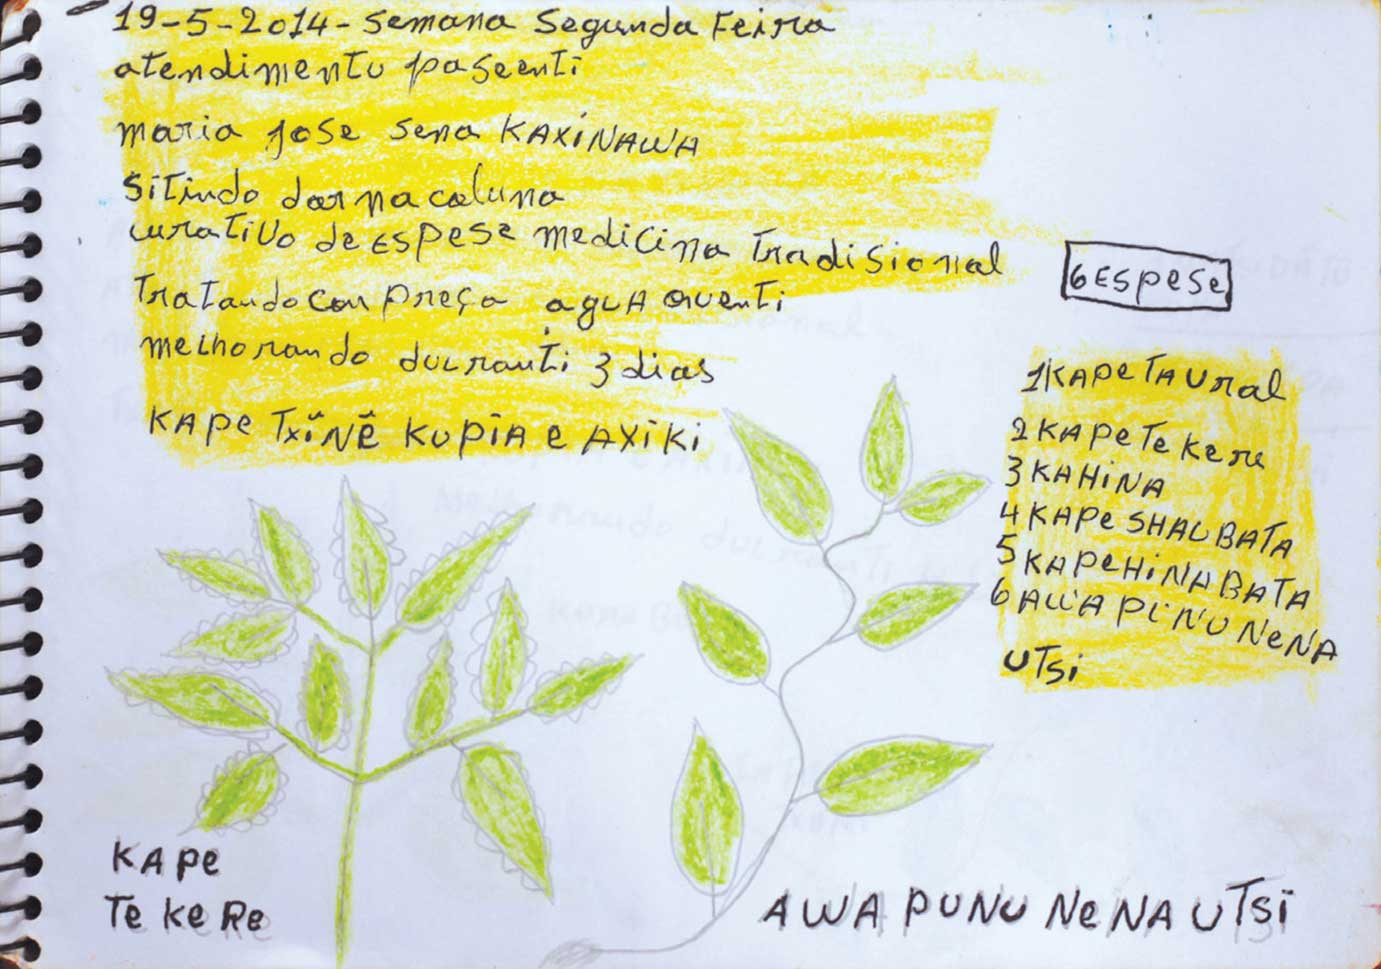 19-5-2014- semana segunda Feira
atendimentu paseenti
maria jose sena KAXINAWA
sitindo dor na coluna
curativo de espese medicina tradisional
tratando con preça agua quenti
melhorando duranti 3 dias
KAPE TXĨNẼ KUPĨA e AXIKI
6 Espese
1 KAPE TAURAL
2 KAPE TE KERE
3 KAHINA
4 KAPE SHAU BATA
5 KAPE HINA BATA
6 AWA PUNU NENA
UTSI
KAPE
TE KERE
AWA PUNU NENA UTSI